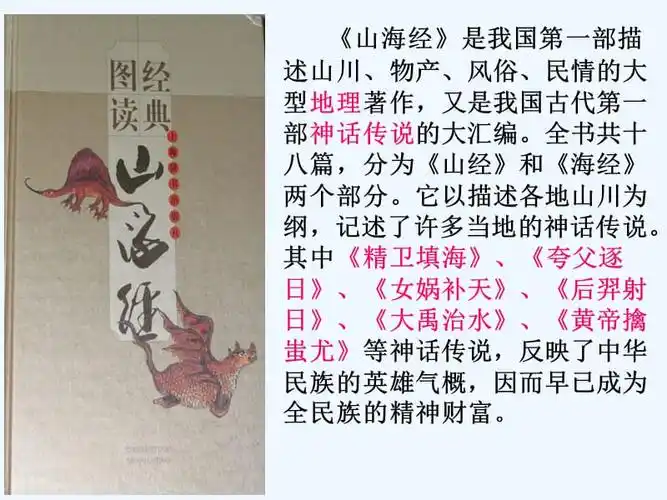 经典
图读
山海经
《山海经》是我国第一部描
述山川、物产、风俗、民情的大
型地理著作，又是我国古代第一
部神话传说的大汇编。全书共十
八篇，分为《山经》和《海经》
两个部分。它以描述各地山川为
纲，记述了许多当地的神话传说。
其中《精卫填海》、《夸父逐
日》、《女娲补天》、《后羿射
日》、《大禹治水》、《黄帝擒
蚩尤》等神话传说，反映了中华
民族的英雄气概，因而早已成为
全民族的精神财富。